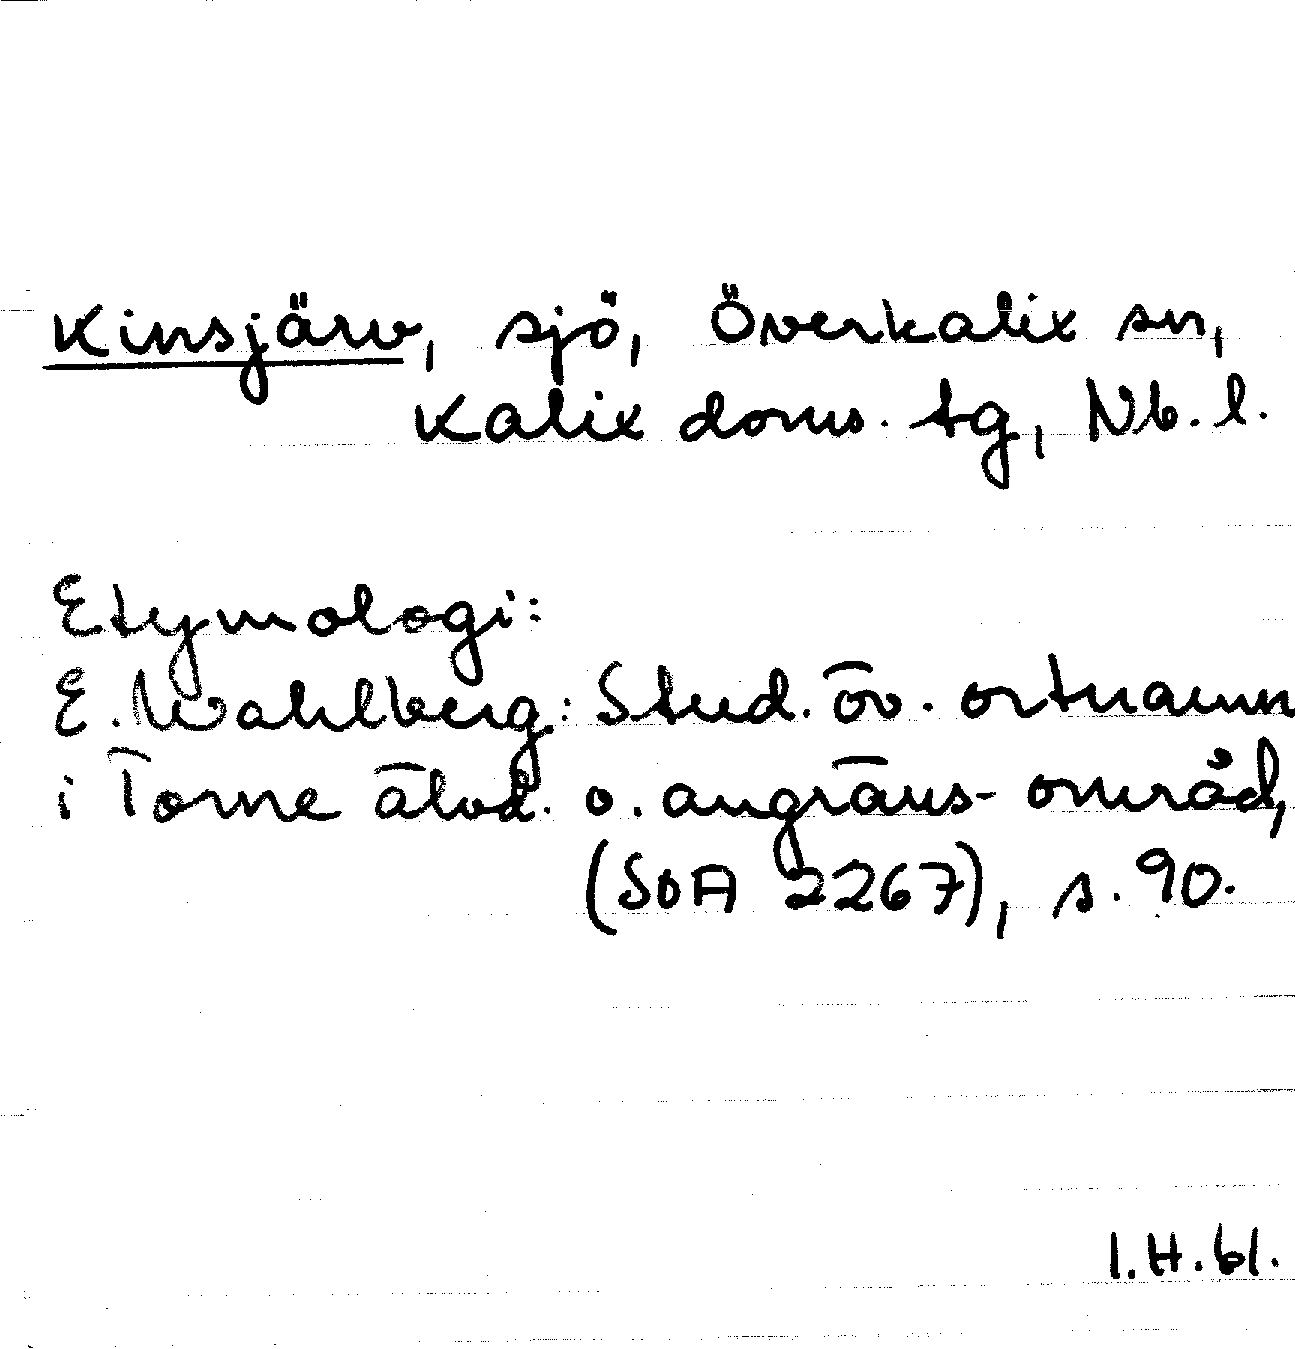 Kinsjärv, sjö, Överkalix sn,
Kalix doms. tg, Nb. l.
Etymologi:
E. Wahlberg: Stud. öv. ortnamn
i Torne älvd. o. angräns- områd,
(SOA 2267), s. 90.
I.H.61.